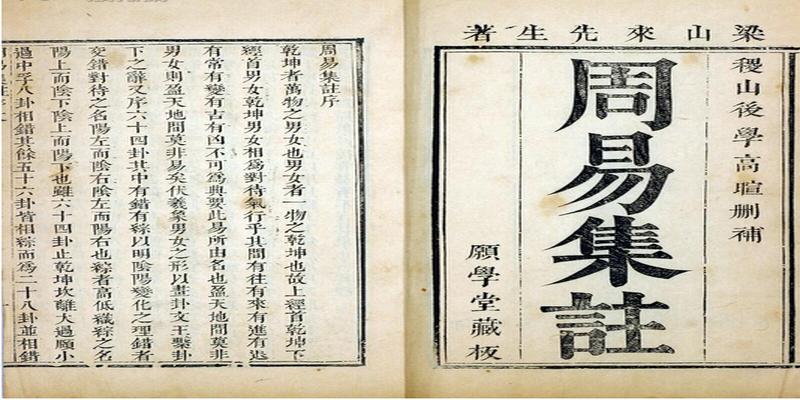 梁山來先生著
稷山後學高暄删補
周易集註
願學堂藏板
周易集註序
乾坤者萬物之男女也男女者一物之乾坤也故上經首乾坤下
經首男女乾坤男女相為對待氣行乎其間有往有來有進有退
有常有變有吉有凶不可為典要此易所由名也盈天地間莫非
男女則盈天地間莫非易矣伏羲象男女之形以畫卦文王繫卦
下之辭又序六十四卦其中有錯有綜以明陰陽變化之理錯者
交錯對待之名陽左而陰右陰左而陽右也綜者高低織綜之名
陽上而陰下陰上而陽下也雖六十四卦止乾坤坎離大過頤小
過中孚八卦相錯其餘五十六卦皆相綜而為二十八卦並相錯